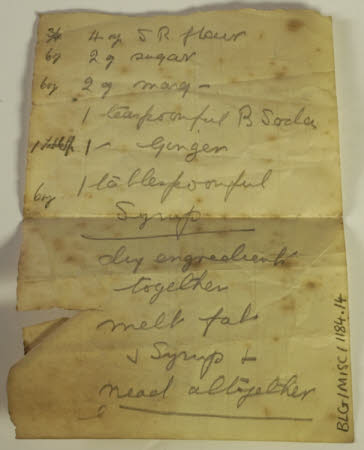 4 oz S R flour
6oz 2 oz sugar
6oz 2 oz marg -
1 teaspoonful B Soda
1 - Ginger
6oz 1 tablespoonful
Syrup
dry engredients
together
melt fat
& Syrup +
nead altogether
BLG/MISC/1184.14